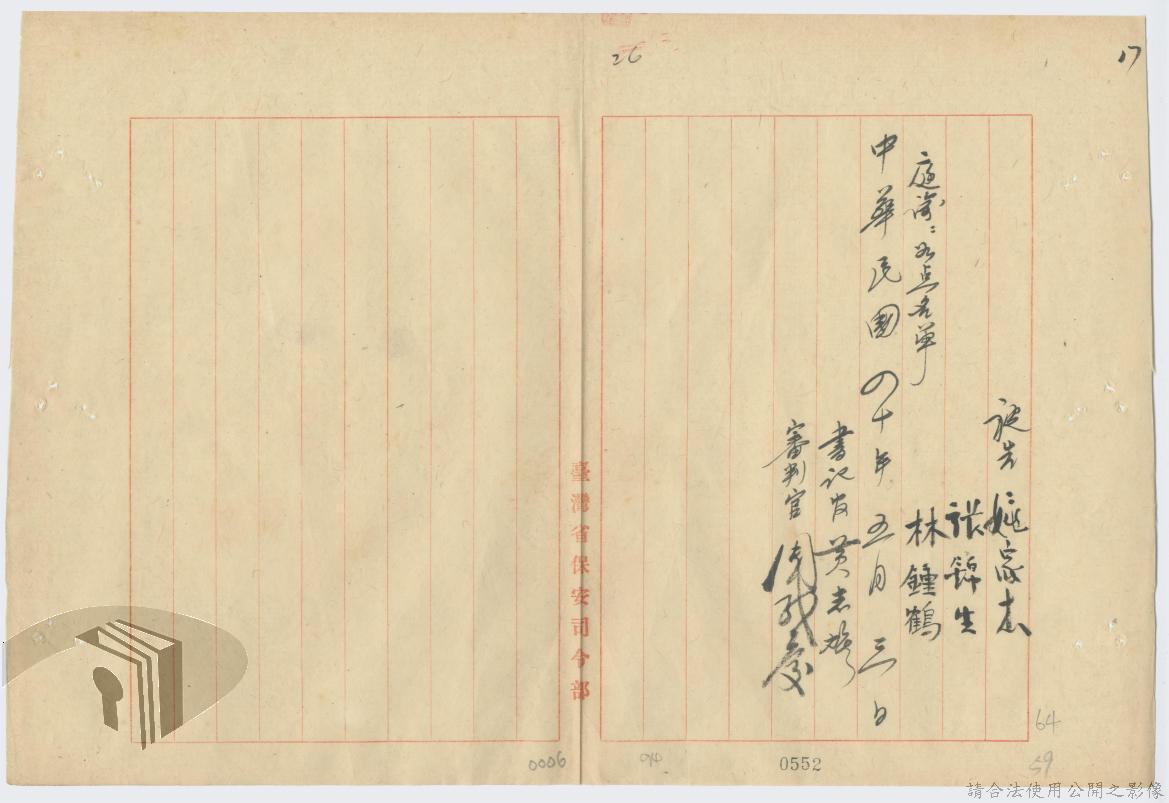 26
17
被告
張錦生
林鍾鶴
庭諭:
点名單
中華民國四十年五月三日
書記官 黃志
審判官
臺灣省保安司令部
64
59
0552
0006
請合法使用公開之影像